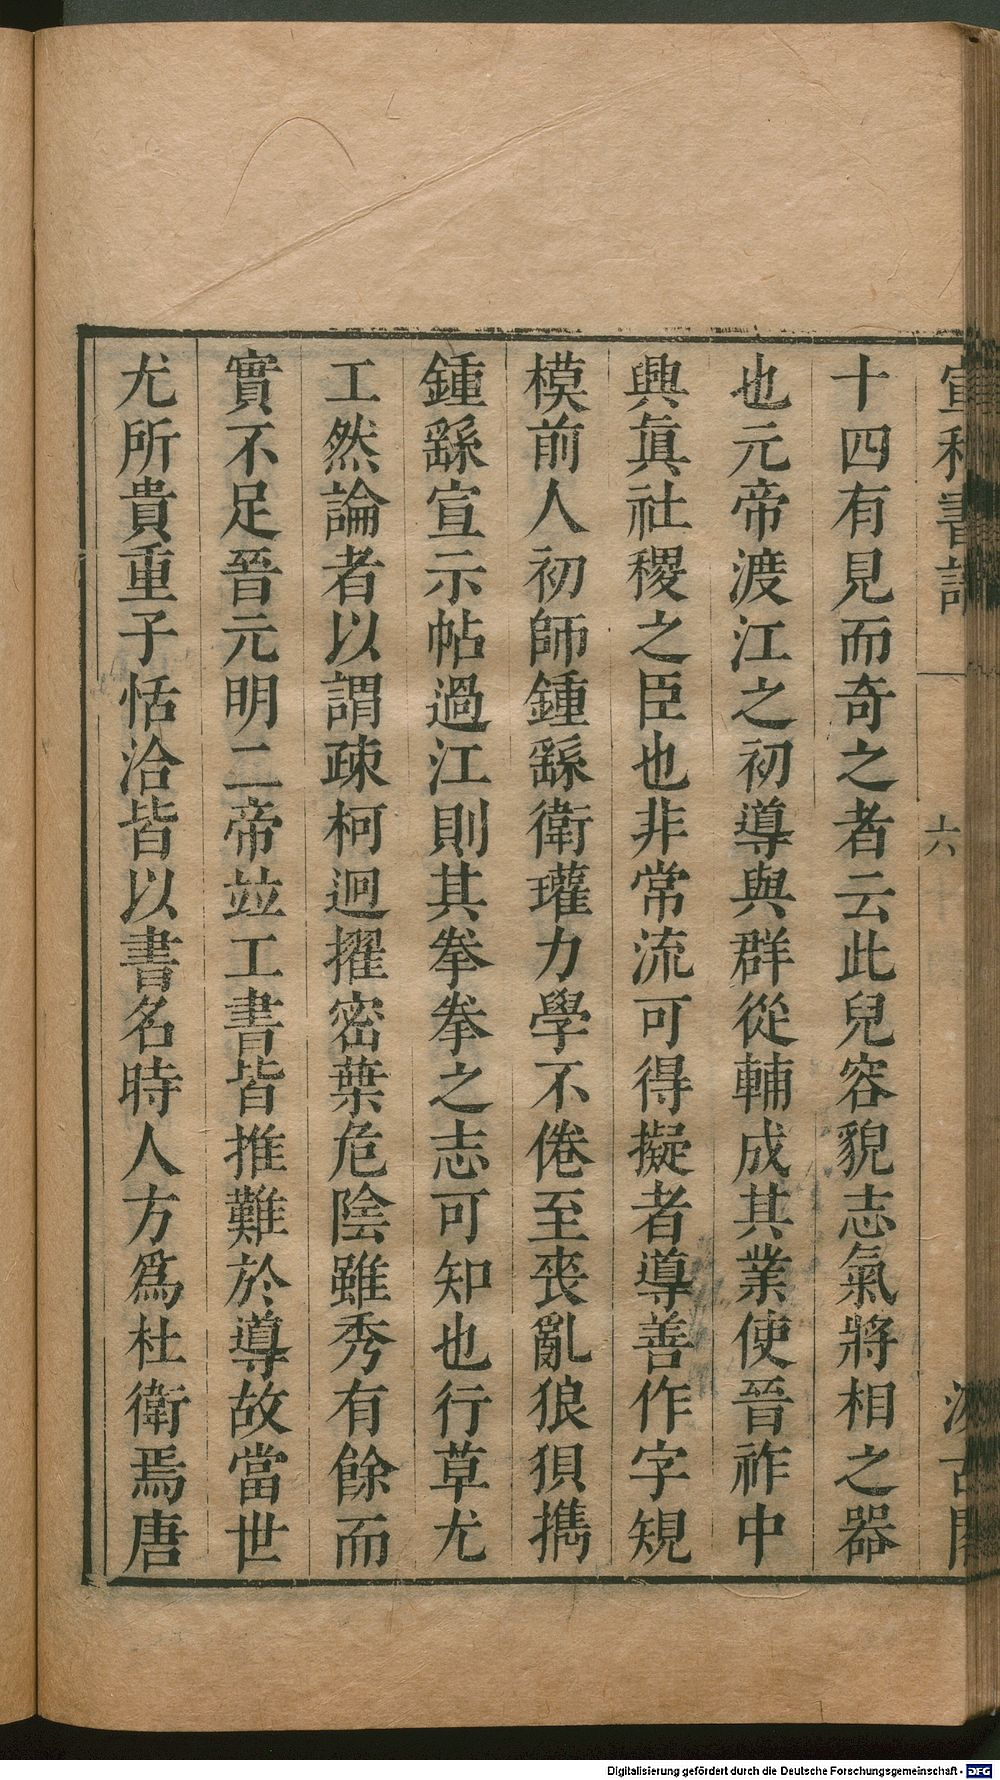 宣和書譜 六 汲古閣
十四有見而奇之者云此兒容貌志氣將相之器
也元帝渡江之初導與群從輔成其業使晉祚中
興眞社稷之臣也非常流可得擬者導善作字規
模前人初師鍾繇衛瓘力學不倦至丧亂狼狽攜
鍾繇宣示帖過江則其拳拳之志可知也行草尤
工然論者以謂疎柯迥擢密葉危陰雖秀有餘而
實不足晉元明二帝竝工書皆推難於導故當世
尤所貴重子恬洽皆以書名時人方爲杜衛焉唐
Digitalisierung gefördert durch die Deutsche Forschungsgemeinschaft - DFG